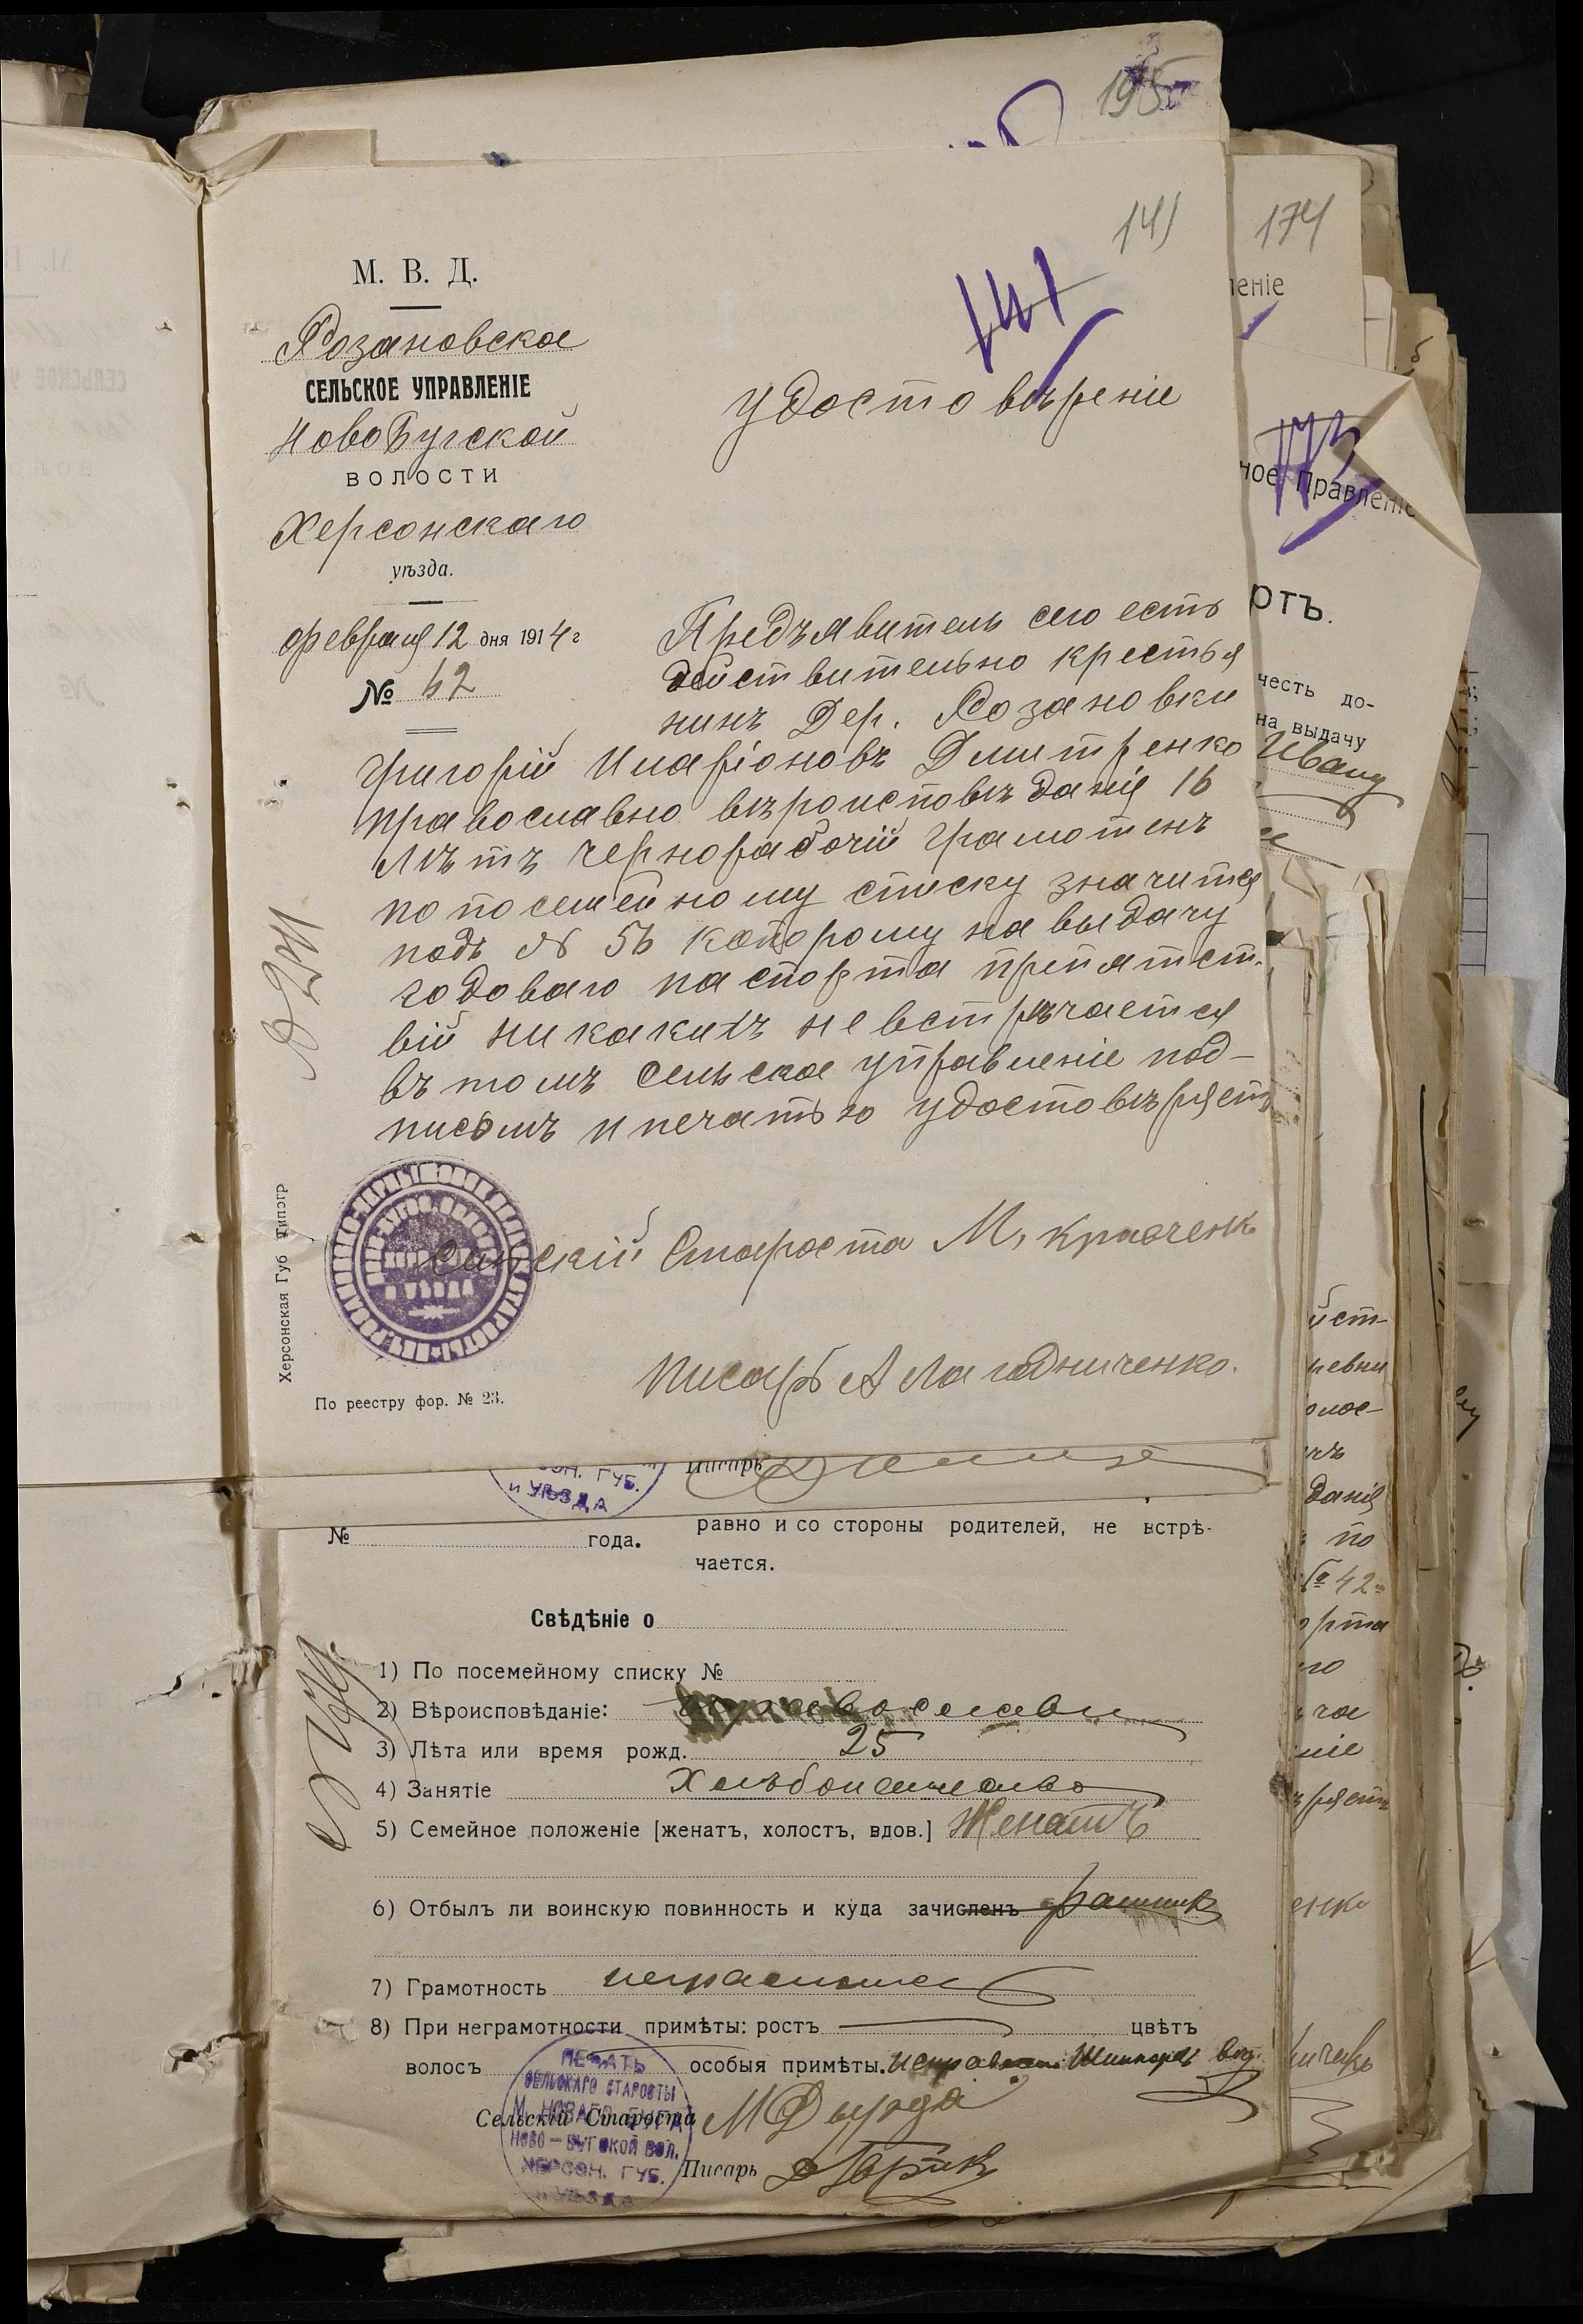 195
141
174
141
М. В. Д.
Розановское
СЕЛЬСКОЕ УПРАВЛЕНІЕ
НовоБугской
ВОЛОСТИ
Херсонскаго
уѣзда.
февраля 12 дня 1914 г
№ 42
удостовѣреніе
Предъявитель сего есть
действительно крестья
нинъ Дер. Розановки
Григорій Иларіоновъ Дмитренко
православно вѣроисповѣданія 16
Лѣтъ чернорабочій грамотенъ
по посемейному списку значится
подъ № 56 которому на выдачу
годоваго паспорта препятст-
вій никакихъ не встрѣчается
въ томъ Сельское управленіе под-
писомъ и печатью удостовѣряетъ
Сельскій Староста М. Кравченк
Писарь А Лагодниченко.
Херсонская Губ Типогр
По реестру фор. № 23.
леніе
173
ное Правленіе
ртъ.
честь до-
на выдачу
Ивану
ОН. ГУБ.
и УѢЗДА
Писарь
№ года.
равно и со стороны родителей, не встрѣ-
чается.
Свѣдѣніе о
1) По посемейному списку №
2) Вѣроисповѣданіе: православн
3) Лѣта или время рожд. 25
4) Занятіе Хлѣбопашество
5) Семейное положеніе [женатъ, холостъ, вдов.] Женатъ
6) Отбылъ ли воинскую повинность и куда зачисленъ
7) Грамотность
8) При неграмотности примѣты: ростъ цвѣтъ
волосъ особыя примѣты.
ПЕЧАТЬ
СЕЛЬСКАГО СТАРОСТЫ
М. НОВАГО-БУГА
НОВО-БУГСКОЙ ВОЛ.
ХЕРСОН. ГУБ.
и УѢЗДА
Сельскій Староста
Писарь
йст-
ревни
олос-
данія
по
№ 42
орта
го
ча
ніе
енко